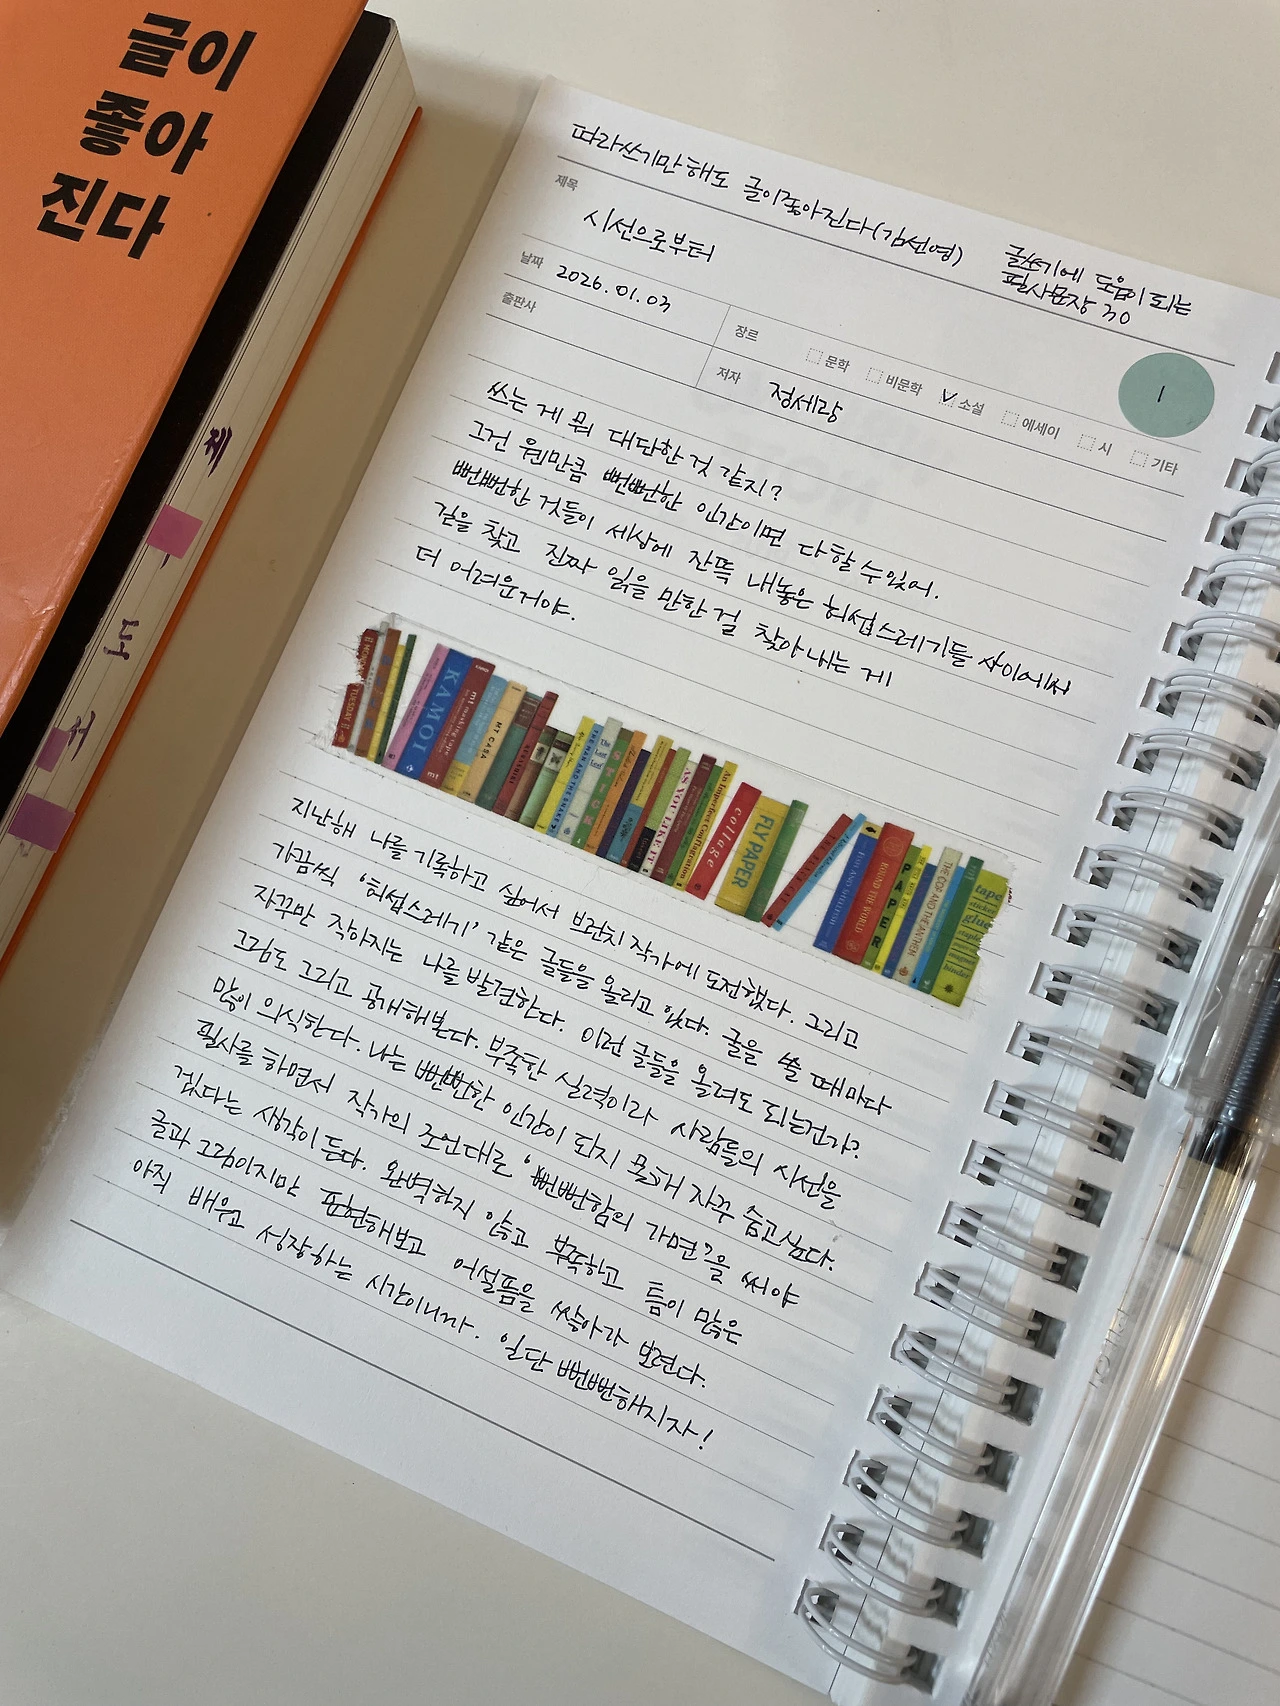 글이
좋아
진다
따라쓰기만 해도 글이 좋아진다(김선영)
글쓰기에 도움이 되는
필사문장 30
제목
시선으로부터
날짜 2026. 01. 03
출판사
장르 문학 비문학 V 소설 에세이 시 기타
저자 정세랑
1
쓰는 게 뭐 대단한 것 같지?
그건 웬만큼 뻔뻔한 인간이면 다 할 수 있어.
뻔뻔한 것들이 세상에 잔뜩 내놓은 허섭스레기들 사이에서
길을 찾고 진짜 읽을 만한 걸 찾아내는 게
더 어려운거야.
TUESDAY
KAMOI
mt
MT CASA
The Last Leaf
AS YOU LIKE IT
An Imperfect Conflagration
collage
FLY PAPER
ROUND THE WORLD
PAPER
tape
sticker
glue
staple
magnet
binder
지난해 나를 기록하고 싶어서 브런치 작가에 도전했다. 그리고
가끔씩 '허섭스레기' 같은 글들을 올리고 있다. 글을 쓸 때마다
자꾸만 작아지는 나를 발견한다. 이런 글들을 올려도 되는건가?
그림도 그리고 공개해본다. 부족한 실력이라 사람들의 시선을
많이 의식한다. 나는 뻔뻔한 인간이 되지 못해 자꾸 숨고싶다.
필사를 하면서 작가의 조언대로 '뻔뻔함의 가면'을 써야
겠다는 생각이 든다. 완벽하지 않고 부족하고 틈이 많은
글과 그림이지만 표현해보고 어설픔을 쌓아가 보련다.
아직 배우고 성장하는 시간이니까. 일단 뻔뻔해지자!